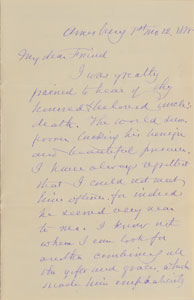 Amesbury 2nd Mo 12, 18
My dear Friend
I was greatly
pained to hear of thy
honored & beloved uncle's
death. The world seems
poorer lacking his benign
and beautiful presence.
I have always regretted
that I could not meet
him oftener, for indeed
he seemed very near
to me. I know not
where I can look for
another combining all
the gifts and graces which
made him emphatically